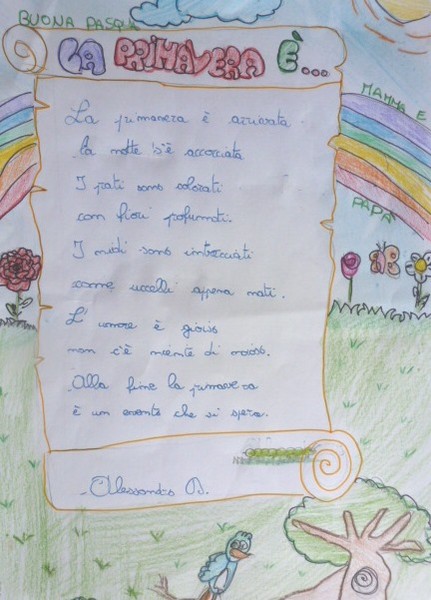 BUONA PASQUA
LA PRIMAVERA È...
MAMMA E
PAPÀ
La primavera è arrivata
la notte s'è accorciata
I prati sono colorati
con fiori profumati.
I nidi sono intrecciati
come uccelli appena nati.
L'umore è gioioso
non c'è niente di noioso.
Alla fine la primavera
è un evento che si spera.
Alessandro D.